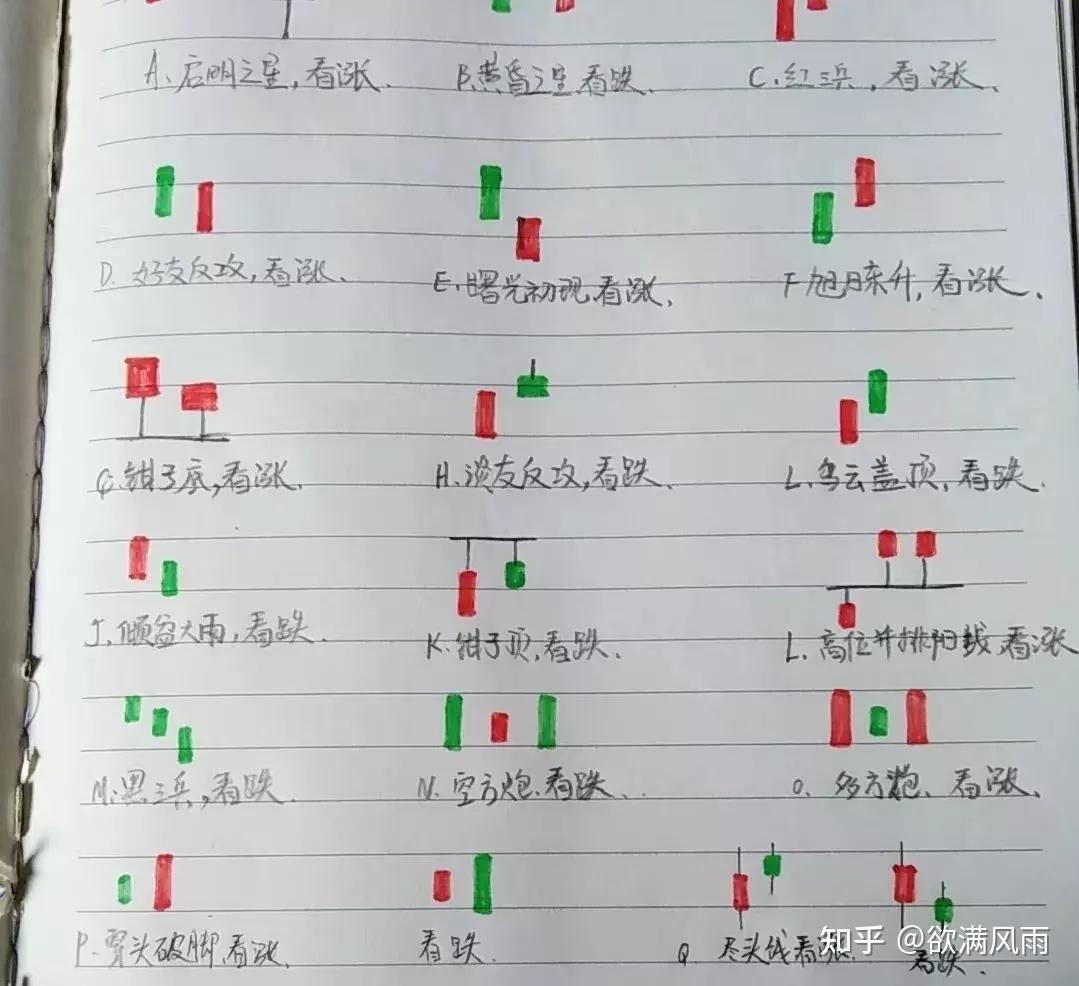 A、启明之星，看涨.
B.黄昏之星,看跌.
C.红三兵，看涨、
D.好友反攻，看涨、
E.曙光初现,看涨.
F旭日东升，看涨、
G.钳子底,看涨.
H.淡友反攻,看跌.
L.乌云盖顶，看跌.
J.倾盆大雨，看跌.
K.钳子顶,看跌.
L.高位并排阳线,看涨
M.黑三兵,看跌.
N.空方炮.看跌..
O.多方炮、看涨、
P.穿头破脚,看涨.
看跌.
Q 尽头线看涨.
看跌.
知乎 @欲满风雨